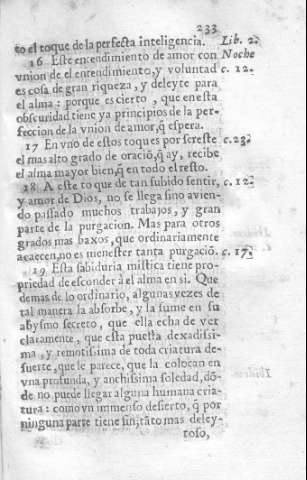 233
to el toque de la perfecta inteligencia. Lib. 2.
16 Este encendimiento de amor con Noche
vnion de el entendimiento, y voluntad c. 12.
es cosa de gran riqueza, y deleyte para
el alma: porque es cierto, que en esta
obscuridad tiene ya principios de la per-
feccion de la vnion de amor, q̃ espera.
17 En vno de estos toques por ser este c. 23.
el mas alto grado de oraciõ, q̃ ay, recibe
el alma mayor bien, q̃ en todo el resto.
18 A este toque de tan subido sentir, c. 12.
y amor de Dios, no se llega sino avien-
do passado muchos trabajos, y gran
parte de la purgacion. Mas para otros
grados mas baxos, que ordinariamente
acaecen, no es menester tanta purgaciõ. c. 17.
19 Esta sabiduria mistica tiene pro-
priedad de esconder à el alma en si. Que
demas de lo ordinario, algunas vezes de
tal manera la absorbe, y la sume en su
abysmo secreto, que ella echa de ver
claramente, que està puesta dexadissi-
ma, y remotissima de toda criatura de-
suerte, que le parece, que la colocan en
vna profunda, y anchissima soledad, dõ-
de no puede llegar alguna humana cria-
tura: como vn immenso desierto, q̃ por
ninguna parte tiene fin, tãto mas deley-
toso,